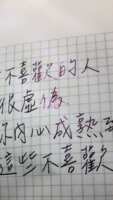 不喜歡的人
很虛偽
你內心成熟到
這些不喜歡